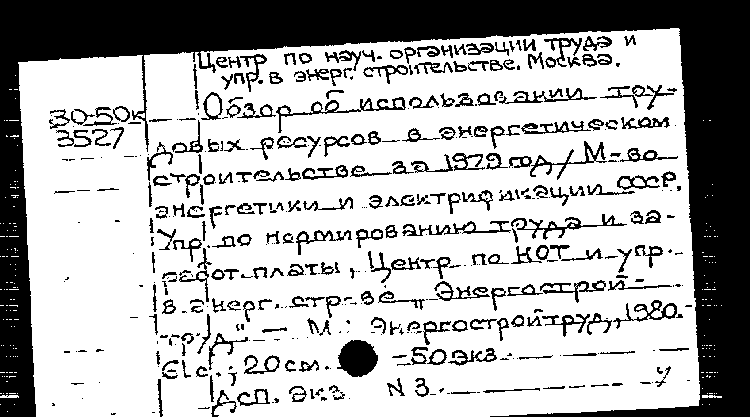 Центр по науч. организации труда и
упр. в энерг. строительстве. Москва.
30-50к
3527
Обзор об использовании тру-
довых ресурсов в энергетическом
строительстве за 1979 год / М-во
энергетики и электрификации СССР,
Упр. по нормированию труда и за-
работ. платы, Центр по НОТ и упр.
в энерг. стр-ве „Энергострой-
труд". — М.: Энергостройтруд, 1980.-
с.; 20 см. -50 экз.
ДСП. Экз N 3.